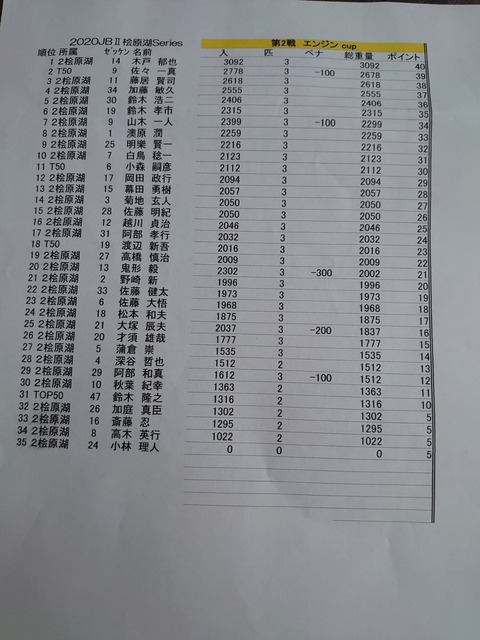 2020JBⅡ桧原湖Series 第2戦 エンジン cup
順位 所属 ｾﾞｯｹﾝ 名前 入 匹 ペナ 総重量 ポイント
1 2桧原湖 14 木戸 郁也 3092 3 3092 40
2 T50 9 佐々 一真 2778 3 −100 2678 39
3 2桧原湖 11 藤居 賢司 2618 3 2618 38
4 2桧原湖 34 加藤 敏久 2555 3 2555 37
5 2桧原湖 30 鈴木 浩二 2406 3 2406 36
6 2桧原湖 19 鈴木 孝市 2315 3 2315 35
7 2桧原湖 9 山木 一人 2399 3 −100 2299 34
8 2桧原湖 1 澳原 潤 2259 3 2259 33
9 2桧原湖 25 明樂 賢一 2216 3 2216 32
10 2桧原湖 7 白鳥 稔一 2123 3 2123 31
11 T50 6 小森 嗣彦 2112 3 2112 30
12 2桧原湖 17 岡田 政行 2094 3 2094 29
13 2桧原湖 15 幕田 勇樹 2057 3 2057 28
14 2桧原湖 3 菊地 玄人 2050 3 2050 27
15 2桧原湖 28 佐藤 明紀 2050 3 2050 26
16 2桧原湖 12 越川 貞治 2046 3 2046 25
17 2桧原湖 31 阿部 孝行 2032 3 2032 24
18 T50 19 渡辺 新吾 2016 3 2016 23
19 2桧原湖 27 高橋 慎治 2009 3 2009 22
20 2桧原湖 13 鬼形 毅 2302 3 −300 2002 21
21 2桧原湖 2 野崎 新 1996 3 1996 20
22 2桧原湖 33 佐藤 健太 1973 3 1973 19
23 2桧原湖 6 佐藤 大悟 1968 3 1968 18
24 2桧原湖 18 松本 和夫 1875 3 1875 17
25 2桧原湖 21 大塚 辰夫 2037 3 −200 1837 16
26 2桧原湖 20 才須 雄哉 1777 3 1777 15
27 2桧原湖 5 蒲倉 崇 1535 3 1535 14
28 2桧原湖 4 深谷 哲也 1512 2 1512 13
29 2桧原湖 29 阿部 和真 1612 3 −100 1512 12
30 2桧原湖 10 秋葉 紀幸 1363 2 1363 11
31 TOP50 47 鈴木 隆之 1316 2 1316 10
32 2桧原湖 26 加庭 真臣 1302 2 1302 5
33 2桧原湖 16 斎藤 忍 1295 2 1295 5
34 2桧原湖 8 高木 英行 1022 2 1022 5
35 2桧原湖 24 小林 理人 0 0 0 5